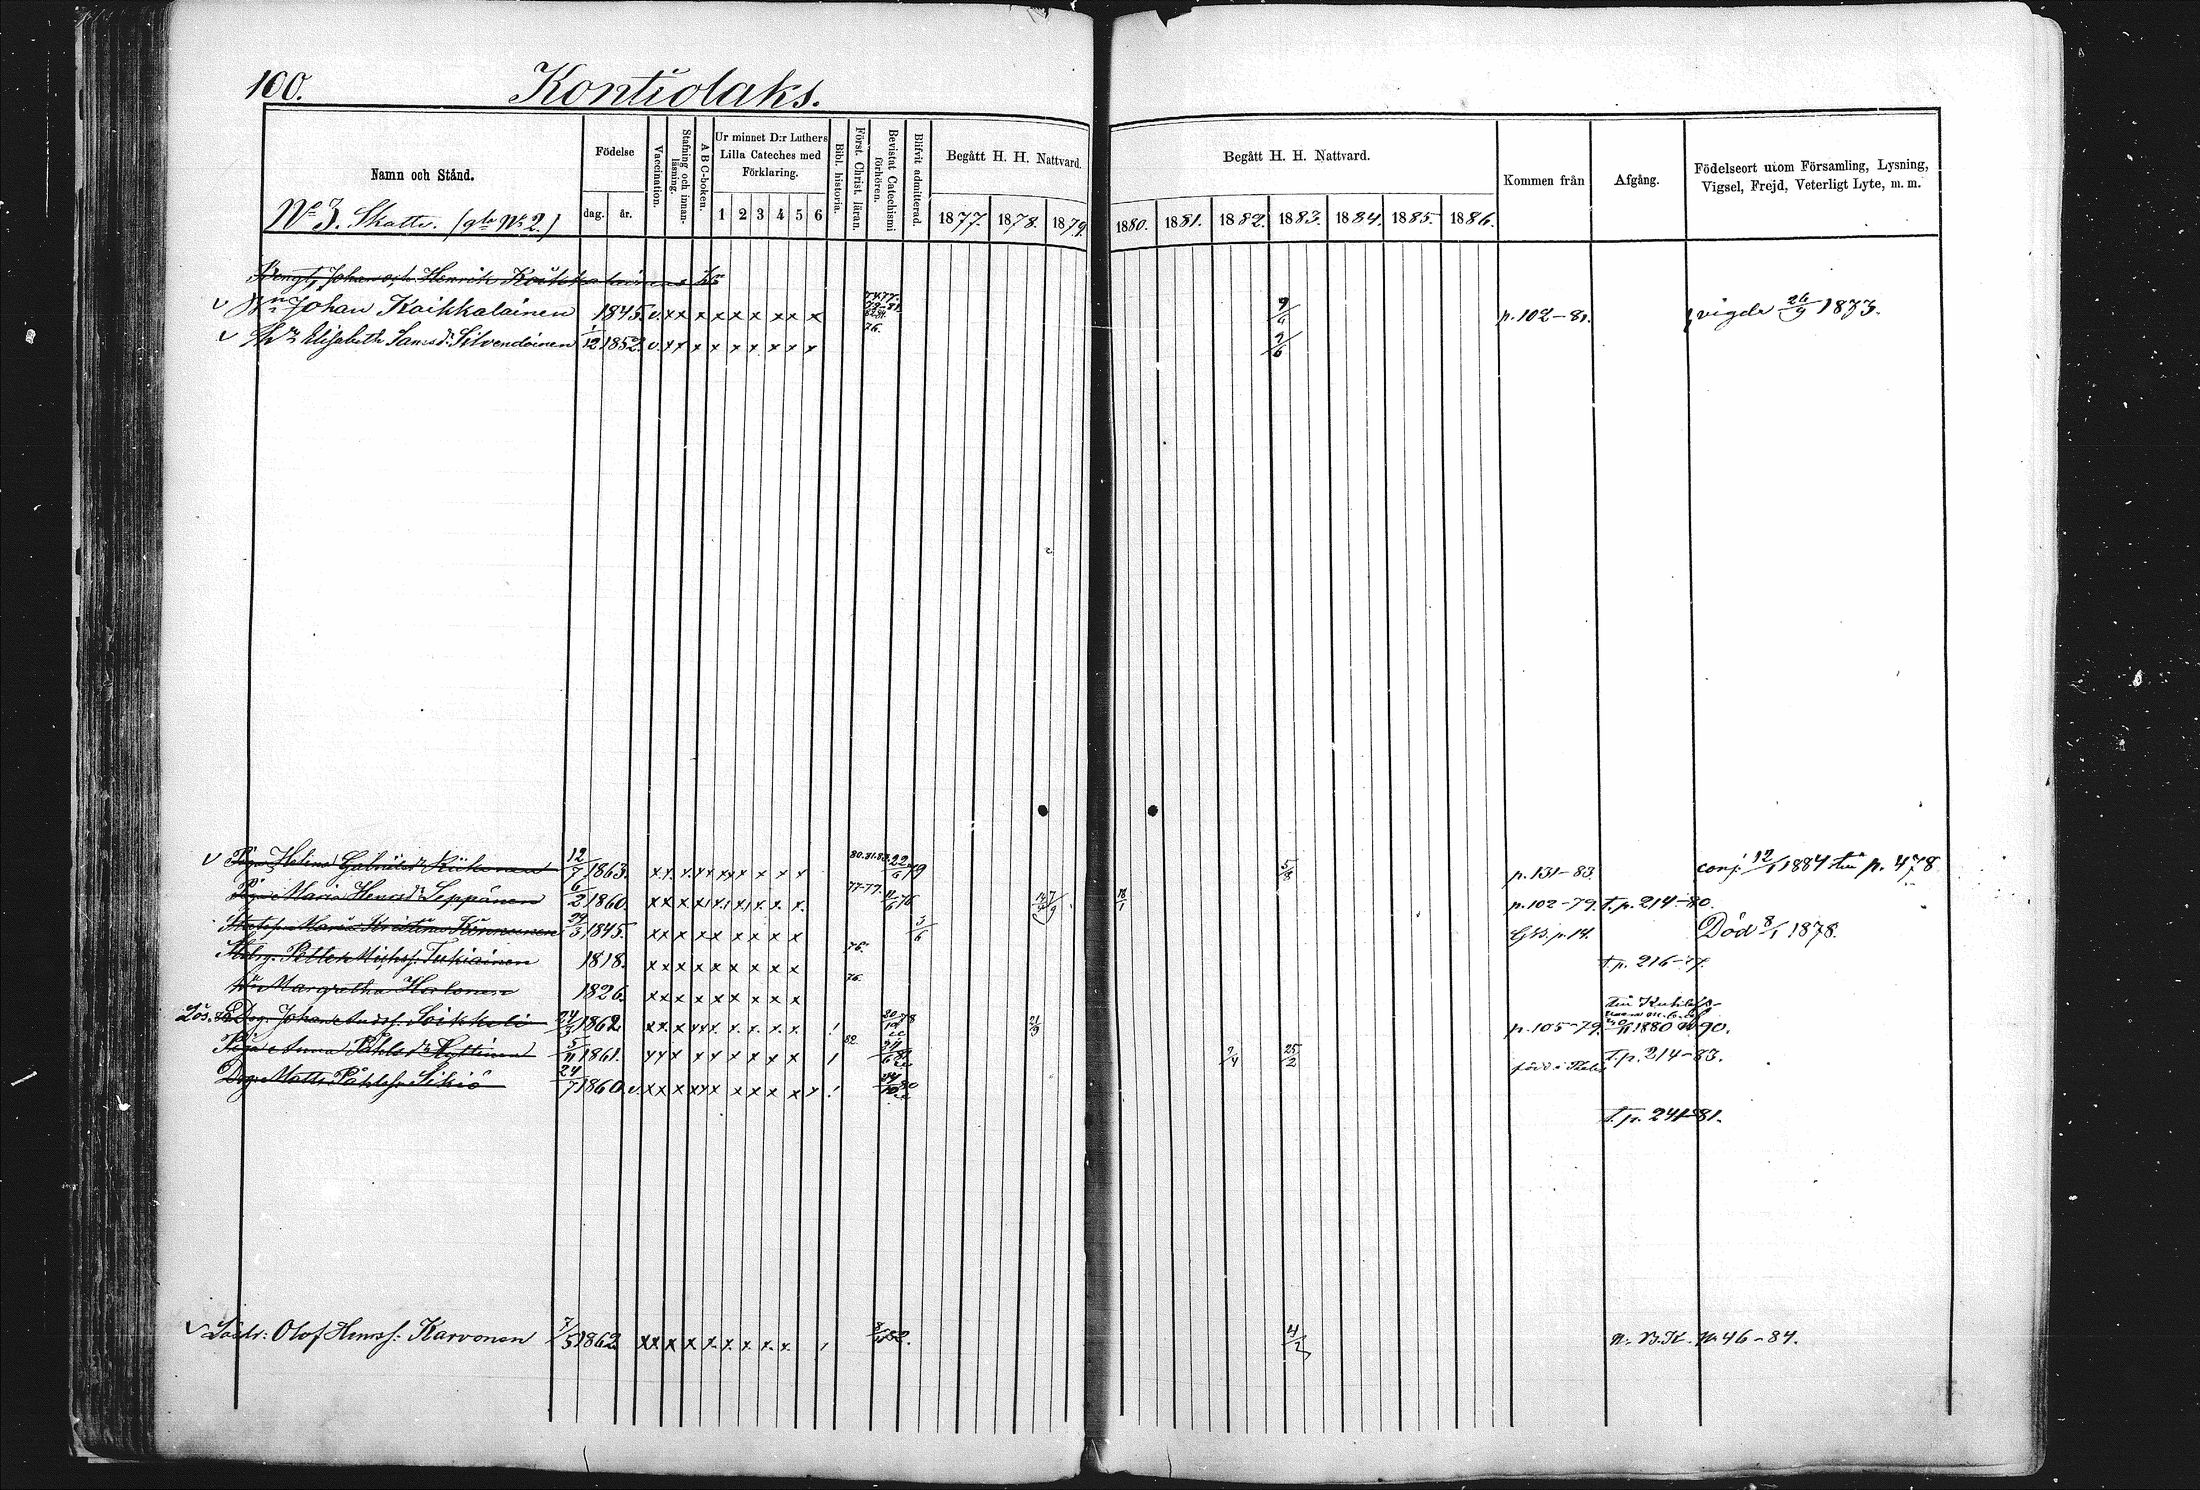 100. Kontiolaks.
Namn och Stånd.
Födelse
dag. år.
Vaccination.
Stafning och innanläsning.
A B C-boken.
Ur minnet D:r Luthers Lilla Cateches med Förklaring.
1 2 3 4 5 6
Bibl. historia.
Först. Christ. läran.
Bevistat Catechismi förhören.
Blifvit admitterad.
Begått H. H. Nattvard.
1877. 1878. 1879.
Begått H. H. Nattvard.
1880. 1881. 1882. 1883. 1884. 1885. 1886.
Kommen från
Afgång.
Födelseort utom Församling, Lysning, Vigsel, Frejd, Veterligt Lyte, m. m.
No 3. Skatte. (gle No 2.)
Bengt, Johan och Henrik Koikkalainens
v Johan Koikkalainen 1845. v. x x x x x x x x x p. 102-81. vigde 26/9 1873.
v Elisabeth Silvendoinen 1/12 1852. v. x x x x x x x x x 76. 9/6
v Helena Gabrielsdr Kiikonen 12/7 1863. x x x x x x x x x 22/6 79 5/8 p. 131-83. conj. 12/1 1884 p. 478
Maria Henrsdr Seppänen 6/2 1860. x x x x x x x x x 77-79. p. 102-79. T. p. 214-80.
Maria Kristina 29/3 1845. x x x x x x x x x 3/6 Död 8/1 1878.
Petter Tukiainen 1818. x x x x x x x x x 76. T. p. 216-
Margretha 1826. x x x x x x x x x 76.
Lös. Johan Andrs. Loikkeli 24/3 1862 x x x x x x x x x 21/9 p. 105-79. 1880 No 90.
Anna Påhlsdr 5/11 1861. x x x x x x x x x 82. 25/2 T. p. 214-83.
Matts Påhls. Sikiö 24/7 1860. v. x x x x x x x x x
T. p. 241-81.
v Olof Henrs. Karvonen 7/5 1862 x x x x x x x x x 82. No 46-84.